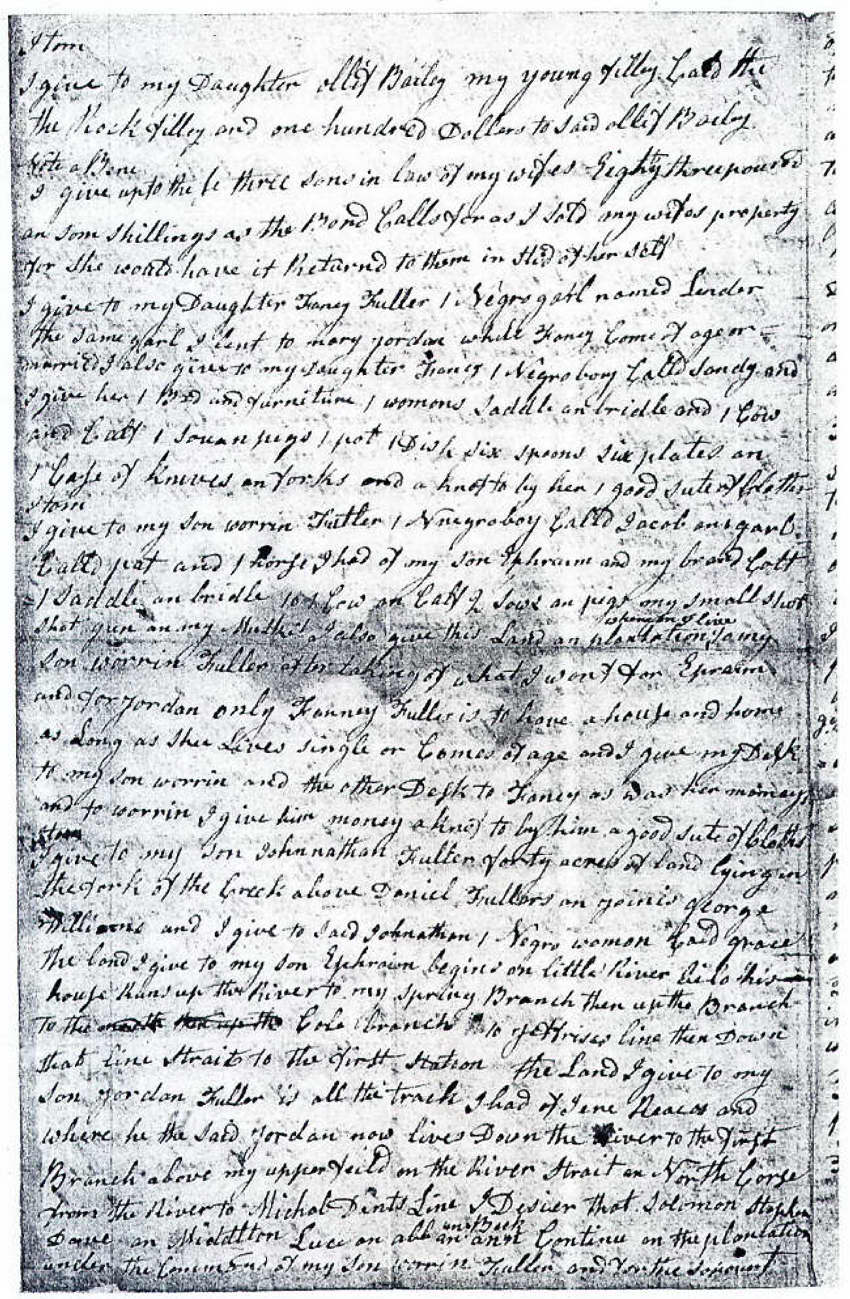 Itom
I give to my Daughter ollif Bailey my young filley Cald the
the Rock filley and one hundred Dollers to said ollif Bailey
Note a Bene
I give upto the three sons in law of my wifes Eighty three pound
an som shillings as the Bond Calls for as I sold my wifes property
for she would have it Returnd to them in sted of her self
I give to my Daughter Faney Fuller 1 Negro garl named Lender
the same garl I lent to mary jordan while Faney Comes of age or
married I also give to my Daughter Faney 1 Negro boy Calld Sandy and
I give her 1 Bed and furniture 1 womons Saddle an bridle and 1 Cow
and Calf 1 Sow an pigs 1 pot 1 Dish six spoons six plates an
1 Case of knives an forks and a knof to by her 1 good sute of Cloths
Itom
I give to my son worrin Fuller 1 Nnegro boy Calld Jacob an 1 garl
Calld pat and 1 horse I had of my son Ephraim and my brand Colt
1 Saddle an bridle 1 Cow an Calf 2 Sows an pigs my small shot
shot gun an my Musket I also give this Land an plantation whereon I live to my
Son worrin Fuller after taking of what I wont for Epraim
and for jordan only Fanney Fuller is to have a house and home
as Long as shee Lives single or Comes of age and I give my Desk
to my son worrin and the other Desk to Faney as was her mameys
and to worrin I give him money a knof to by him a good sute of Cloths
Itom
I give to my Son Johnnathan Fuller forty acres of Land lying in
the fork of the Creek above Daniel Fullers an joinis george
Williams and I give to said Johnathan 1 Negro woman Cald grace
the land I give to my son Ephraim begins on little River belo his
house Runs up the River to my spring Branch then up the Branch
to the Cole branch to Jeffrises line then Down
that line strait to the first station the Land I give to my
Son jordan Fuller is all the track I had of Jene and
where he the said jordan now lives Down the River to the first
Branch above my upper feild on the River strait an North Corse
from the River to Michal Dents Line I Desier that Solomon Stephen
Dave an Middlton Luce an abb an Beck an ann Continue on the plantation
under the Commend of my son worrin Fuller and for the support